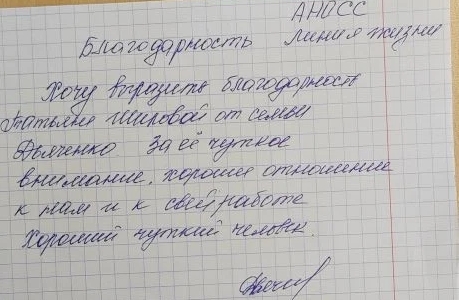 АНОСС
Благодарность Линия жизни
Хочу выразить благодарность
Татьяне Шировой от семьи
Дьяченко За её чуткое
внимание, хорошее отношение
к нам и к своей работе
Хороший чуткий человек.